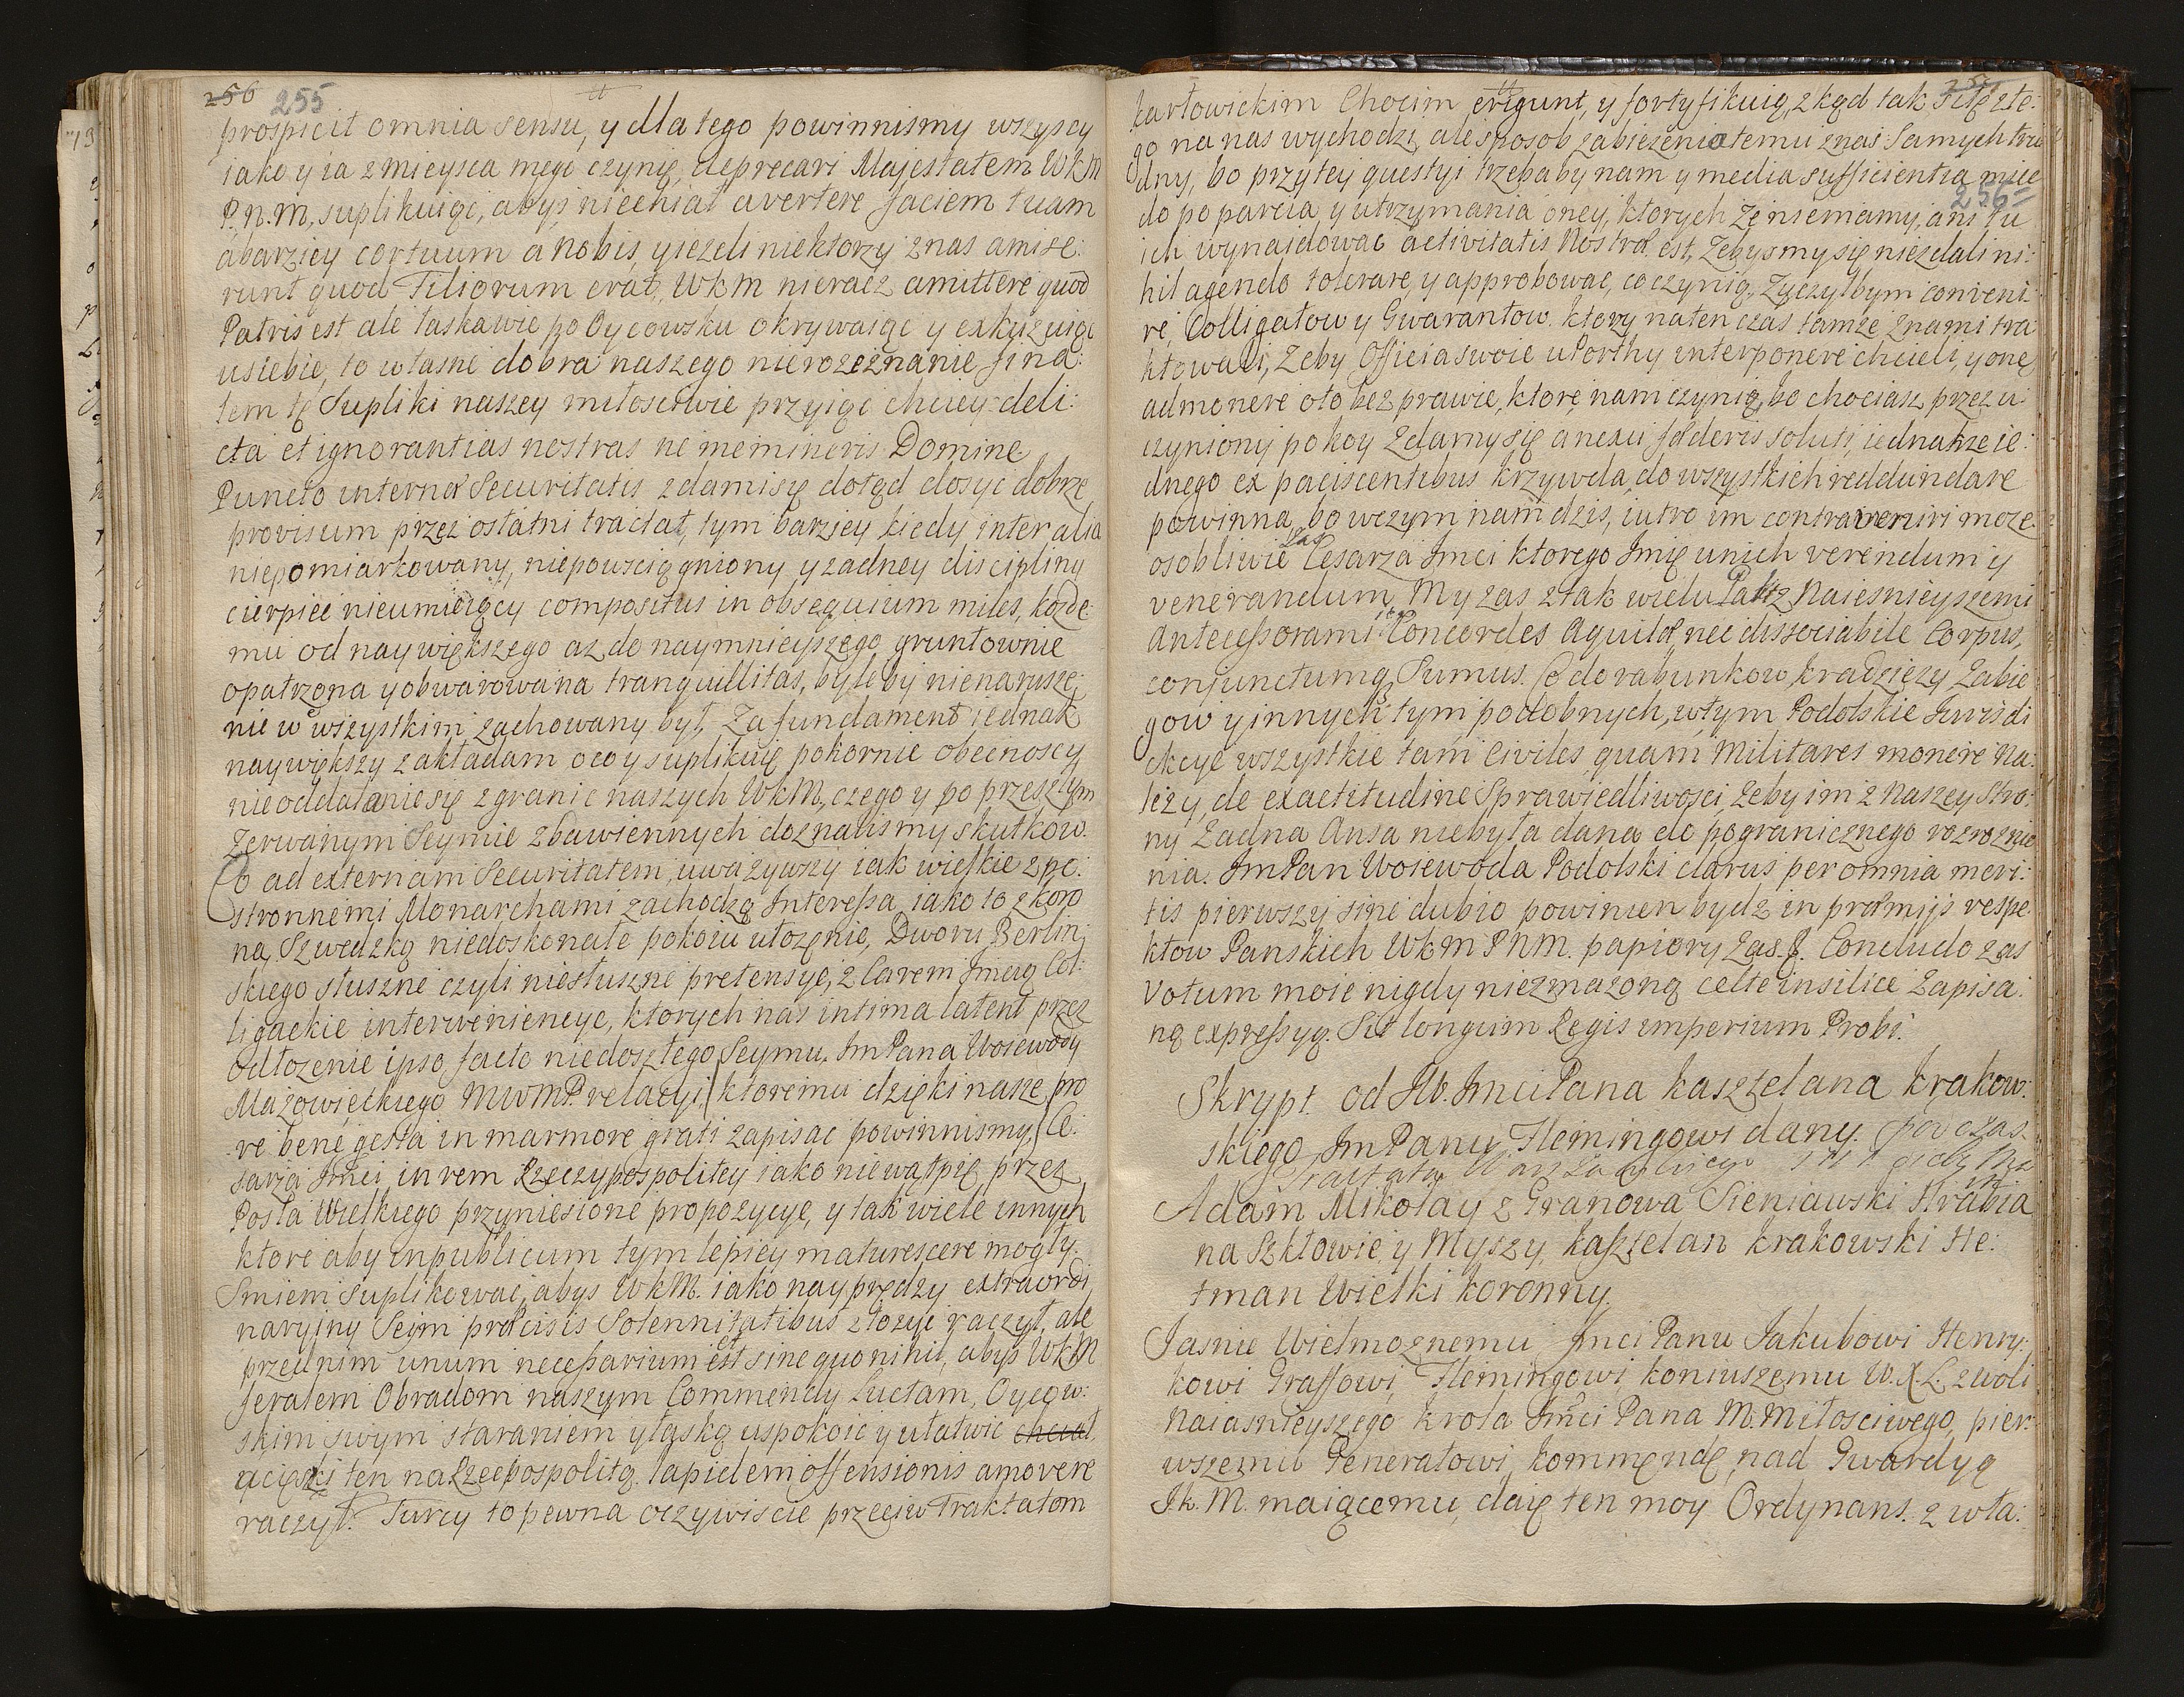 256 255
prospicit omnia sensu, y dla tego powinnismy wszyscy
iako y ia z mieysca mego czynię, deprecari Majestatem WkM
P.n.M, suplikuiąc, abyś niechiał avertere faciem tuam
abarziey cor tuum a nobis, y ieżeli niektorzy znas amise:
runt quod Filiorum erat, WkM nieracz amittere quod
Patris est ale łaskawie po Oycowsku okrywaiąc y exkuzuiąc
usiebie, to własne dobra naszego nierozeznanie
tem tę Supliki naszey miłosciwie przyiąc chciey deli:
cta et ignorantias nostras ne memineris Domine.
Puncto internæ Securitatis zdamisię dotąd dosyc dobrze
provisum przez ostatni tractat, tym barziey kiedy inter alia
niepomiarkowany, niepowsciągniony y zadney discipliny
cierpiec nieumieiący compositus in obsequium miles, kożde:
mu od naywiększego az do naymnieyszego gruntownie
opatrzona y obwarowana tranquillitas, byleby nienarusze:
nie w wszystkim zachowany był, Za fundament iednak
naywiększy zakładam oco y suplikuię pokornie obecnoscy
nieoddalanie się z granic naszych WkM, czego y po przeszłym
Zerwanym Seymie zbawiennych doznalismy skutkow.
Co ad externam Securitatem, uważywszy iak wielkie z po:
stronnemi Monarchami zachodzą Interessa, iako to z koro
ną Szwedzką niedoskonałe pokoiu ułożenie, Dworu Berlin:
skiego słuszne czyli niesłuszne pretensye, z Carem Jmcią Col:
ligackie interweniencye, ktorych nas intima latent przez
odłozenie ipso facto niedoszłego Seymu. Jm Pana Woiewody
Mazowieckiego MWMP. relacyi, (ktoremu dzięki nasze, pro
re bene gesta in marmore grati zapisac powinnismy,) Ce:
sarza Jmci, in rem Rzeczypospolitey iako niewątpię przez
Posła Wielkiego przyniesione propozycye, y tak wiele innych
ktore aby inpublicum tym lepiey maturescere mogły.
Smiem suplikowac, abys WkM. iako nayprędzy extraordi
naryiny Seym præcisis Solennitatibus złożyc raczył, ale
przed nim unum necessarium est sine quo nihil, abyś WkM
feralem Obradom naszym Commendy Luctam, Oycow:
skim swym staraniem y łaską uspokoic y ułatwic chciał
y cięszki ten na Rzeczpospolitą lapidem offensionis amovere
raczył. Turcy to pewna oczywiscie przeciw Traktatom
karłowickim Chocim erigunt, y fortyfikuią, zkąd tak siłę złe:
go na nas wychodzi, ale sposob zabieżenia temu znas Samych tru
dny, bo przy tey questyi trzebaby nam y media sufficientia miec
256
do poparcia y utrzymania oney, ktorych Ze niemamy, ani tu
ich wynaidowac activitatis Nostræ est, Zebysmy się niezdali ni:
hil agendo tolerare, y approbowac, co czynią, Zyczyłbym conveni:
re Colligatow y Gwarantow. ktorzy naten czas tamże znami tra
ktowali, Zeby Officia swoie u Porthy interponere chcieli, y onę
admonere oto bezprawie, ktore nam czynią, bo chociasz przez u:
czyniony pokoy Zdamy się a nexu fæderis soluti, iednakże ie:
dnego ex paciscentibus krzywda, do wszystkich reddundare
powinna, bo wczym nam dzis, iutro im contraveniri moze
osobliwie Cesarza Jmci ktorego Jmię unich verendum y
venerandum, My zas z tak wielu Pakt z Naiesnieyszemi
Antecessorami Concordes Aquilæ, nec dissociabile Corpus,
conjunctumq Sumus. Co do rabunkow, kradzieży Zabie
gow y innych tym podobnych, wtym Podolskie Jurisdi
kcye wszystkie tam Civiles quam Militares monere na:
leży, de exactitudine Sprawiedliwosci, żeby im z Naszey Stro:
ny Zadna Ansa niebyła dana do pogranicznego rozroznie
nia. Jm Pan Woiewoda Podolski clarus per omnia meri:
tis pierwszy sine dubio powinien bydz in præmijs respe:
ktow Panskich WkM PNM. papiory Zas. Concludo zas
Votum moie nigdy niezmazoną celte in silice Zapisa:
ną expressyą. Sit longum Regis imperium Probi.
Skrypt od JW. Jmci Pana kasztelana krakow:
skiego Jm Panu Flemingowi dany. podczas
Traktatu Warszawskiego
Adam Mikołay z Granowa Sieniawski Hrabia
na Szkłowie, y Myszy, kasztelan krakowski He:
tman Wielki koronny.
Jasnie Wielmoznemu Jmci Panu Jakubowi Henry:
kowi Graffowi Flemingowi koniuszemu W.X.L. zwoli
Naiasnieyszego krola Jmci Pana M. Miłosciwego, pier:
wszemu Generałowi, kommendę nad Gwardyą
Jk. M. maiącemu, daię ten moy Ordynans. z wła: